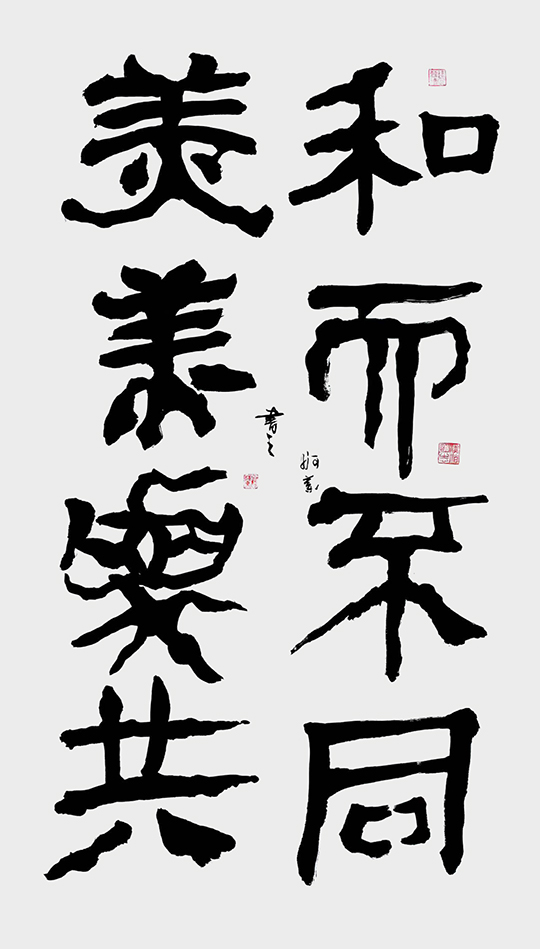 和而不同
美美與共
書之